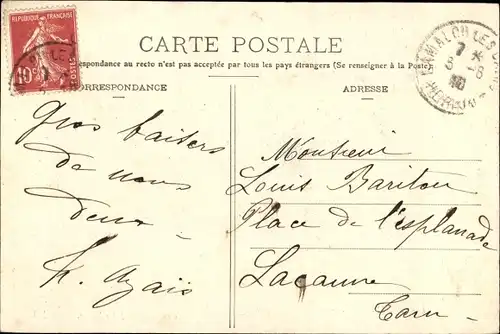 REPUBLIQUE FRANÇAISE
10c
POSTES
CARTE POSTALE
respondance au recto n'est pas acceptée par tous les pays étrangers (Se renseigner à la Poste)
CORRESPONDANCE
ADRESSE
LAMALOU LES
7
8 -6
HERAULT
Gros baisers
de nous
deux -
Azaïs
Monsieur
Louis Bariton
Place de l'esplanade
Lacaune
Tarn -